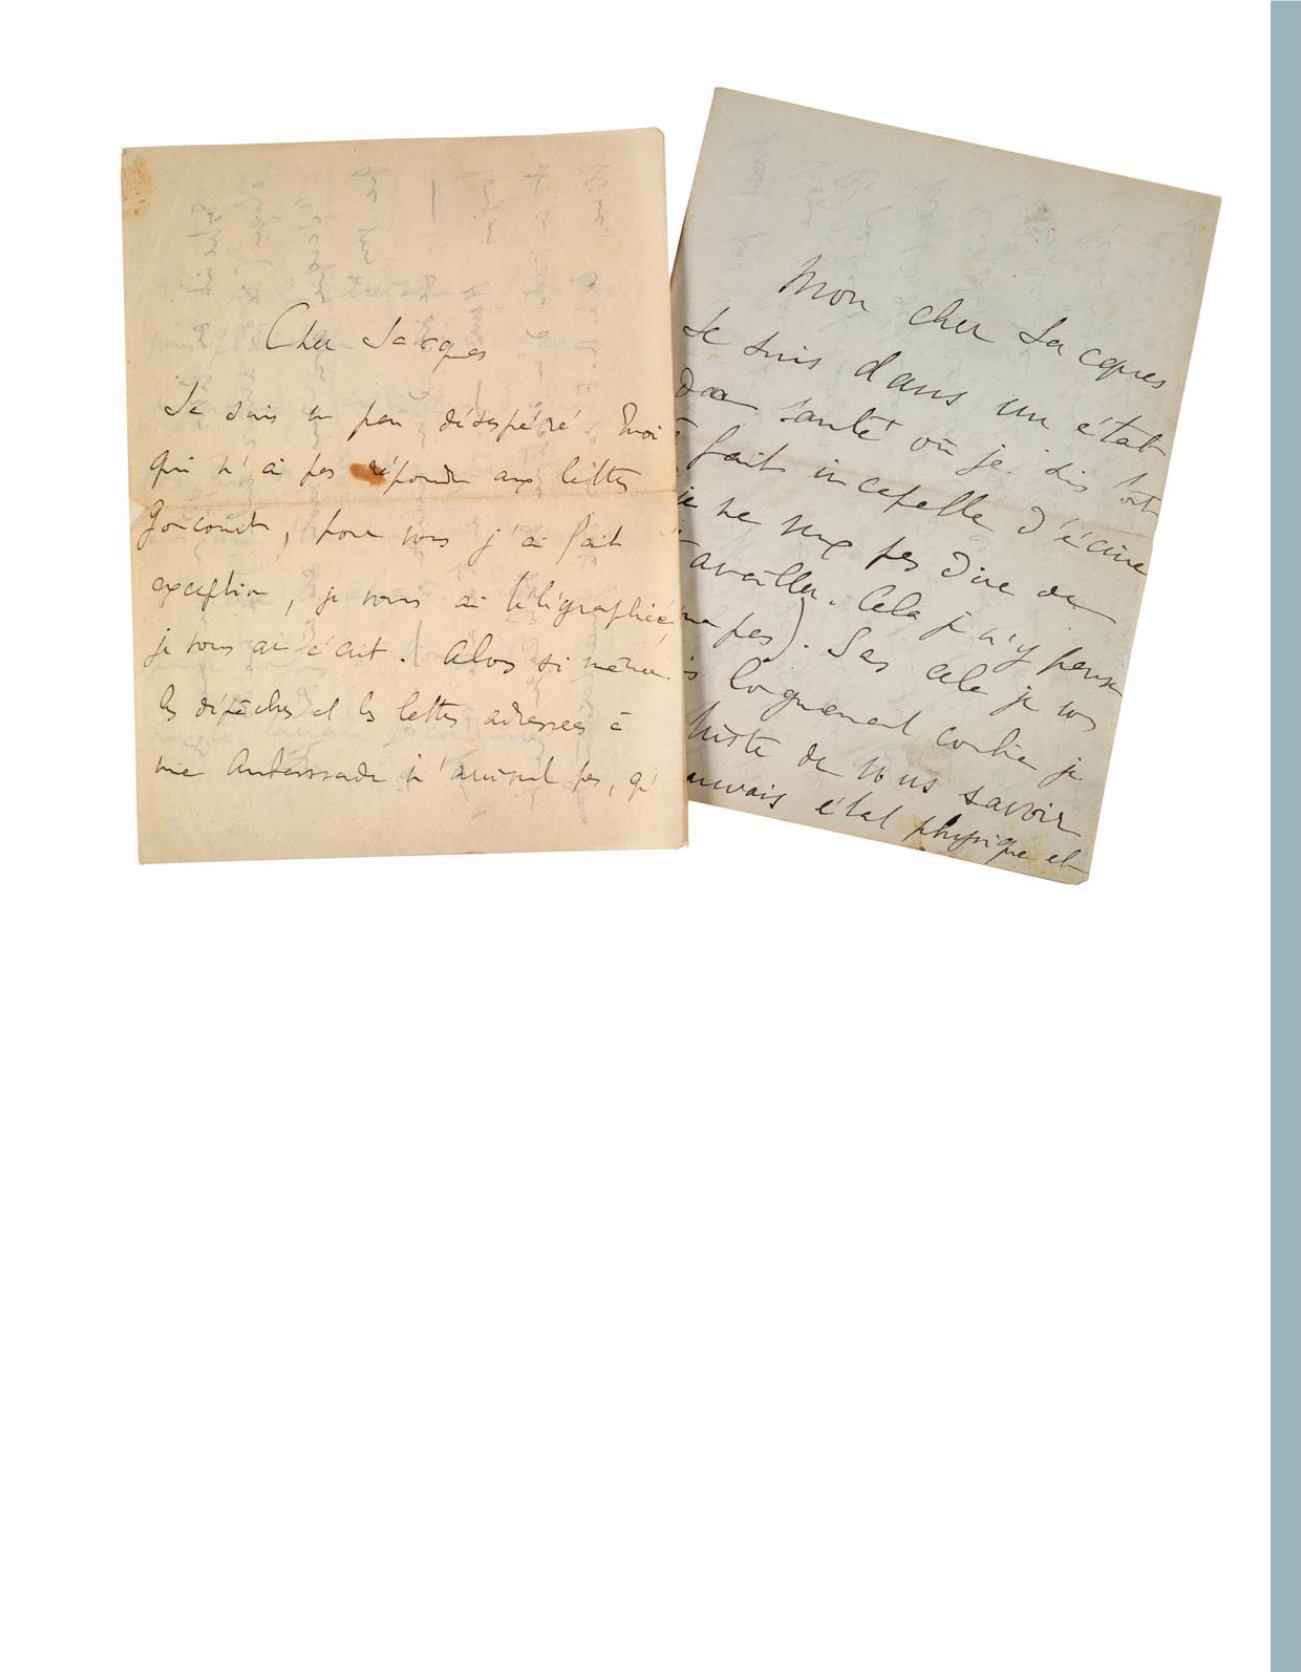 Cher Jacques
Je suis un peu désespéré. Moi
qui n'ai pas répondu aux lettres
Goncourt, pour vous j'ai fait
exception, je vous ai télégraphié,
je vous ai écrit. Alors si même
les dépêches et les lettres adressées à
une Ambassade n'arrivent pas, qu'
Mon cher Jacques
Je suis dans un état
de santé où je suis tout
fait incapable d'écrire
je ne veux pas dire de
travailler. Cela je n'y pense
pas). Sans cela je vous
longuement combien je
triste de vous savoir
mauvais état physique et